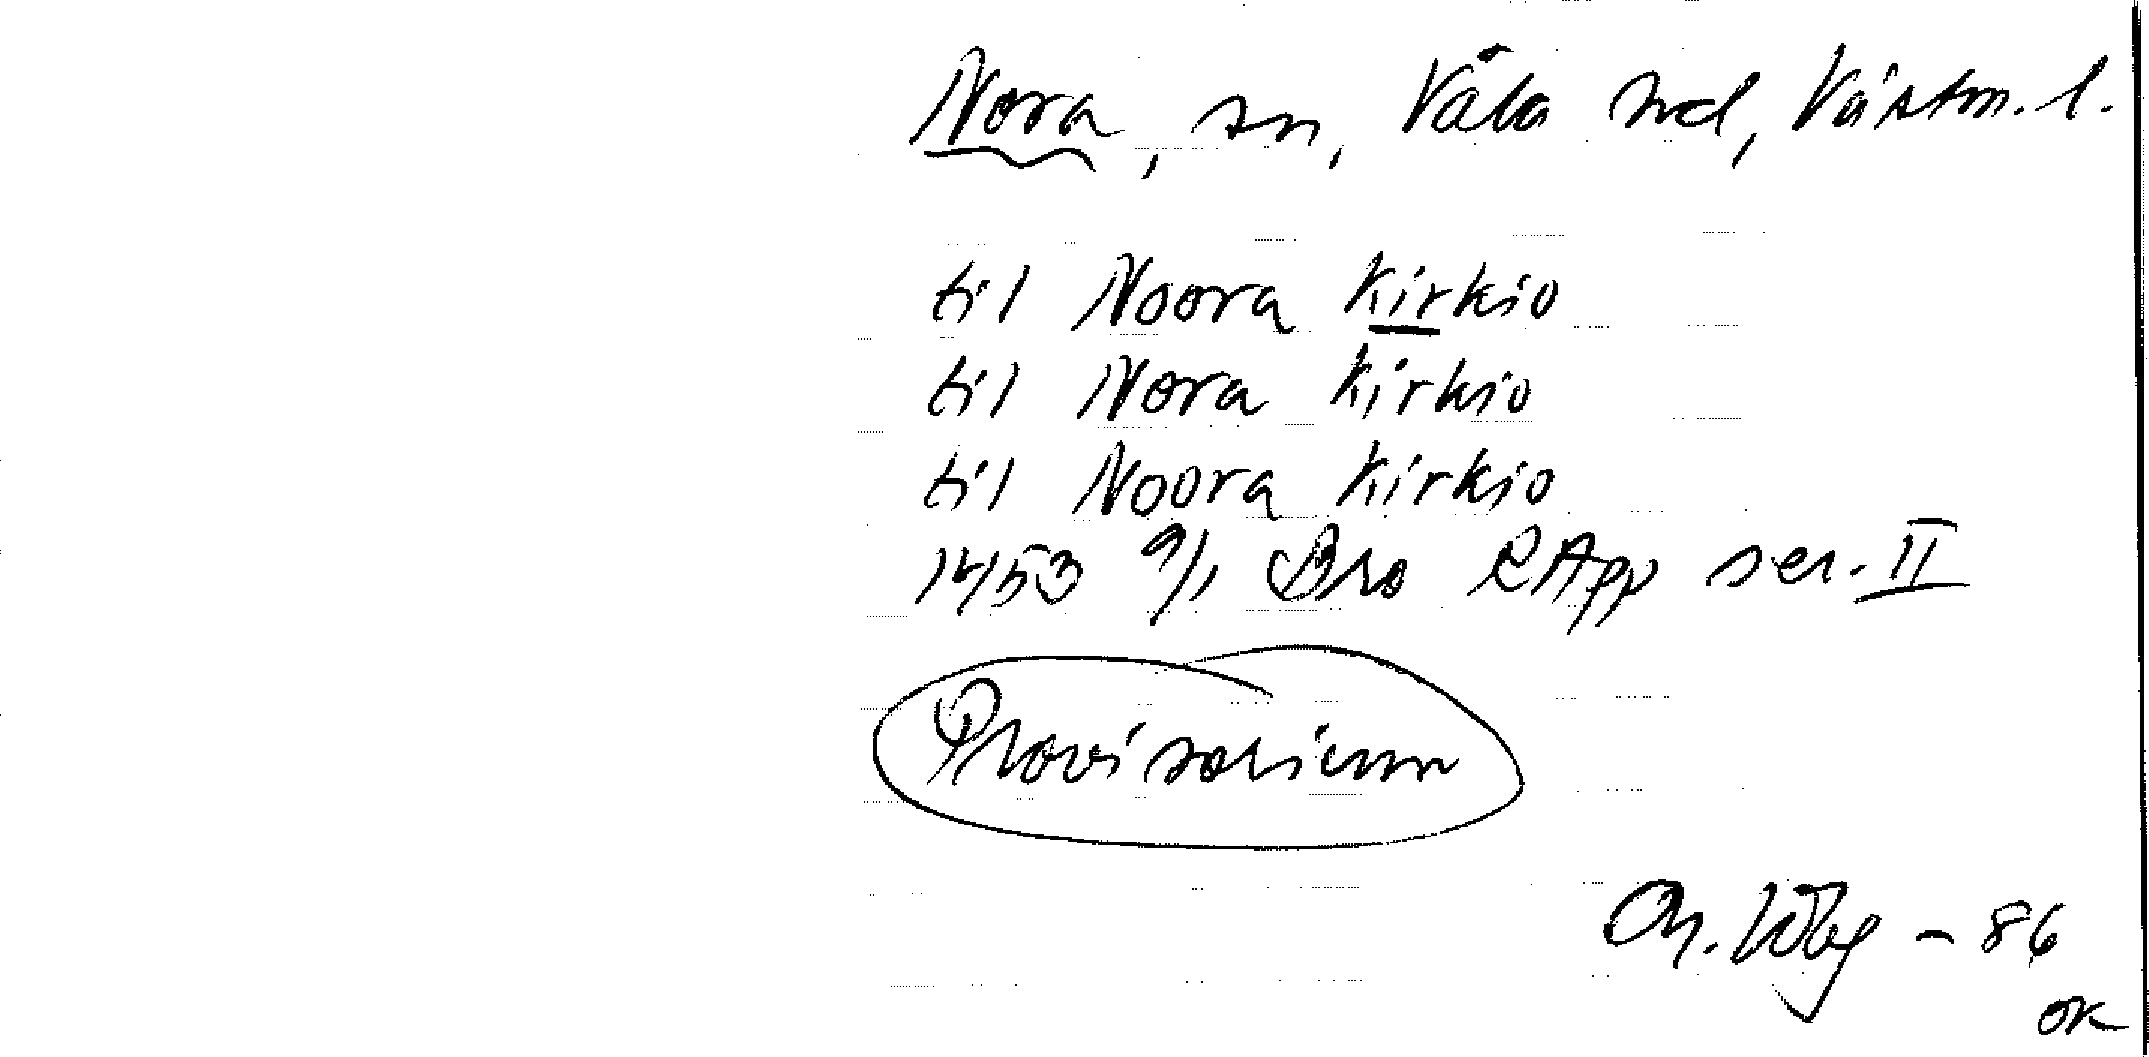 Nora, sn, Våla hd, Västm. l.
til Noora Kirkio
til Nora Kirkio
til Noora Kirkio
1453 9/1 Bro RApp ser. II
Provisorium
- 86
OK